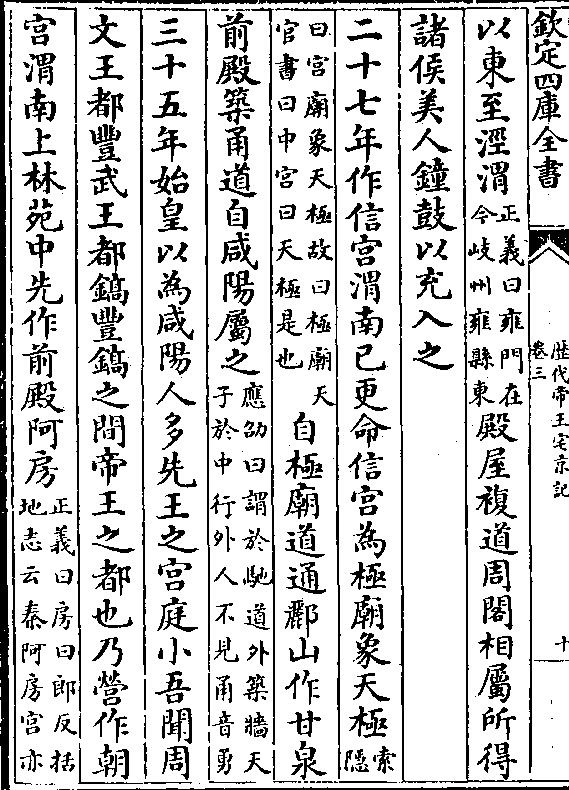 欽定四庫全書
歴代帝王宅京記
卷三
十
以東至涇渭正義曰雍門在今岐州雍縣東殿屋複道周閣相屬所得
諸侯美人鐘鼓以充入之
二十七年作信宮渭南已更命信宮為極廟象天極索隱
曰宫廟象天極故曰極廟天官書曰中宫曰天極是也自極廟道通酈山作甘泉
前殿築甬道自咸陽屬之應劭曰謂於馳道外築牆天子於中行外人不見甬音勇
三十五年始皇以為咸陽人多先王之宮庭小吾聞周
文王都豐武王都鎬豐鎬之間帝王之都也乃營作朝
宮渭南上林苑中先作前殿阿房正義曰房曰郎反括地志云秦阿房宮亦